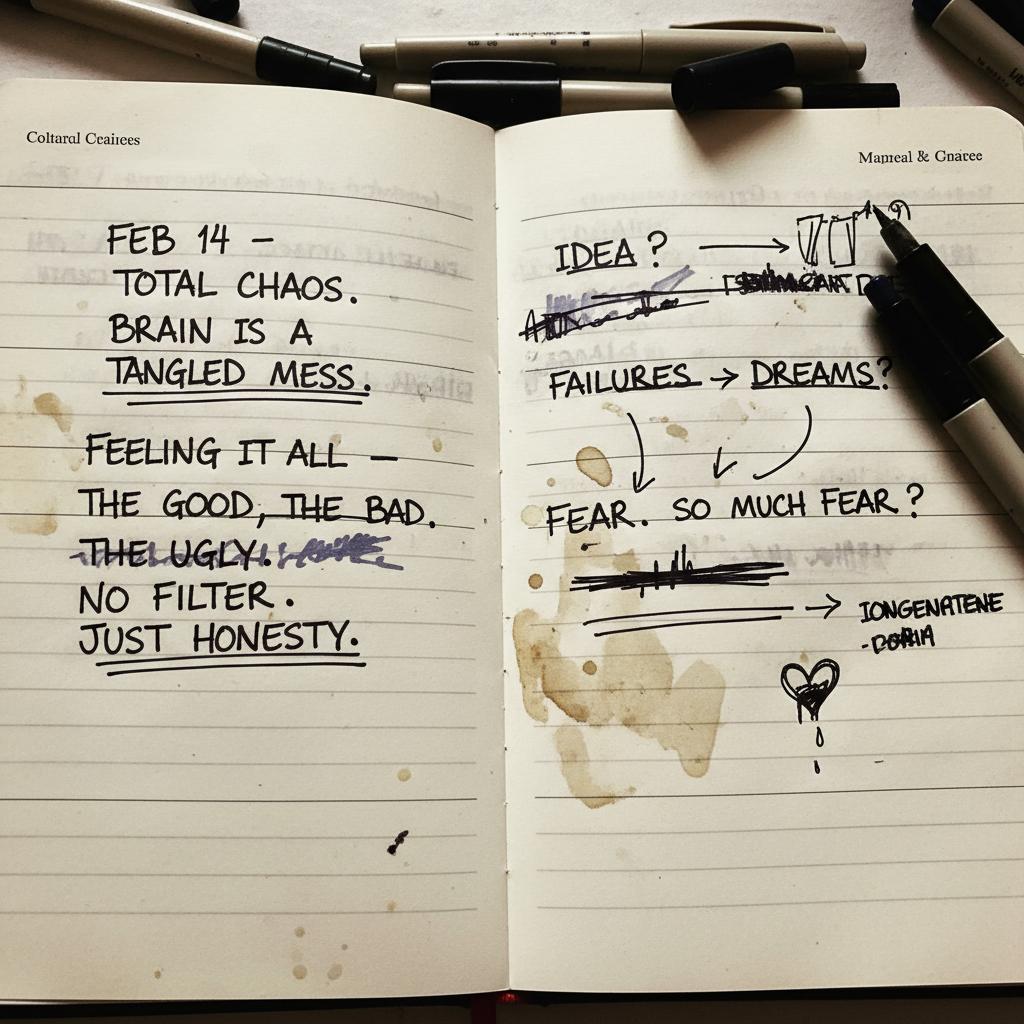 Coltaral Ceaiises
Mapreal & Gnaree
FEB 14 –
TOTAL CHAOS.
BRAIN IS A
TANGLED MESS.
FEELING IT ALL –
THE GOOD, THE BAD.
THE UGLY.
NO FILTER.
JUST HONESTY.
IDEA? →
FAILURES → DREAMS?
FEAR. SO MUCH FEAR?
→ IONGENATENE